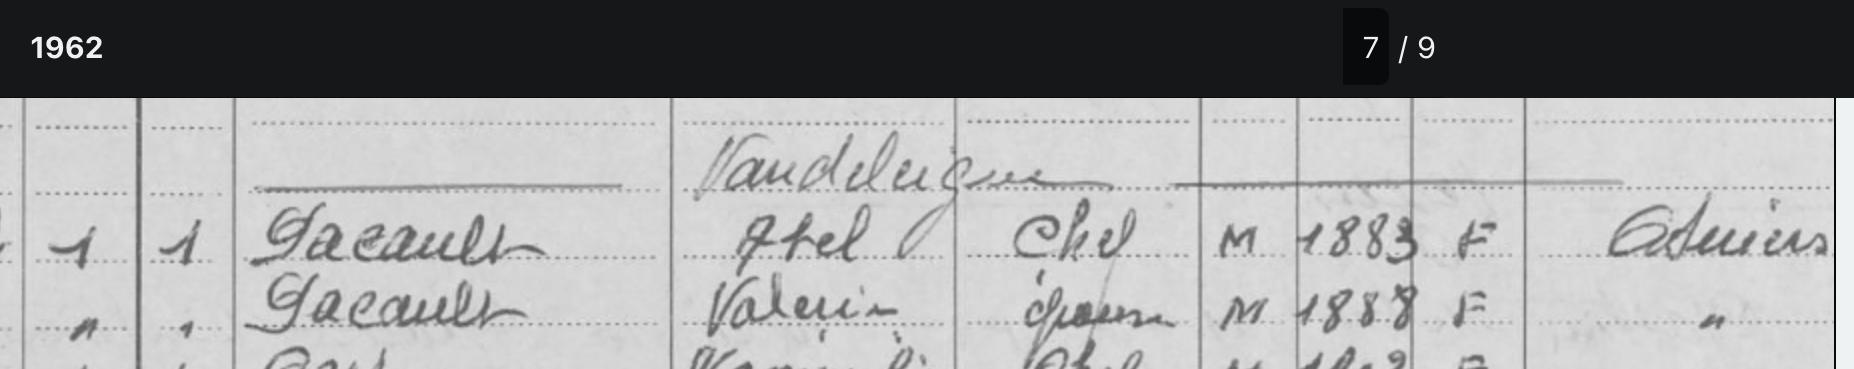 1962 7 / 9
Vaudeleigne
1 1 Gacault Abel Chef M 1883 F Asnières
" " Gacault Valerie épouse M 1888 F "